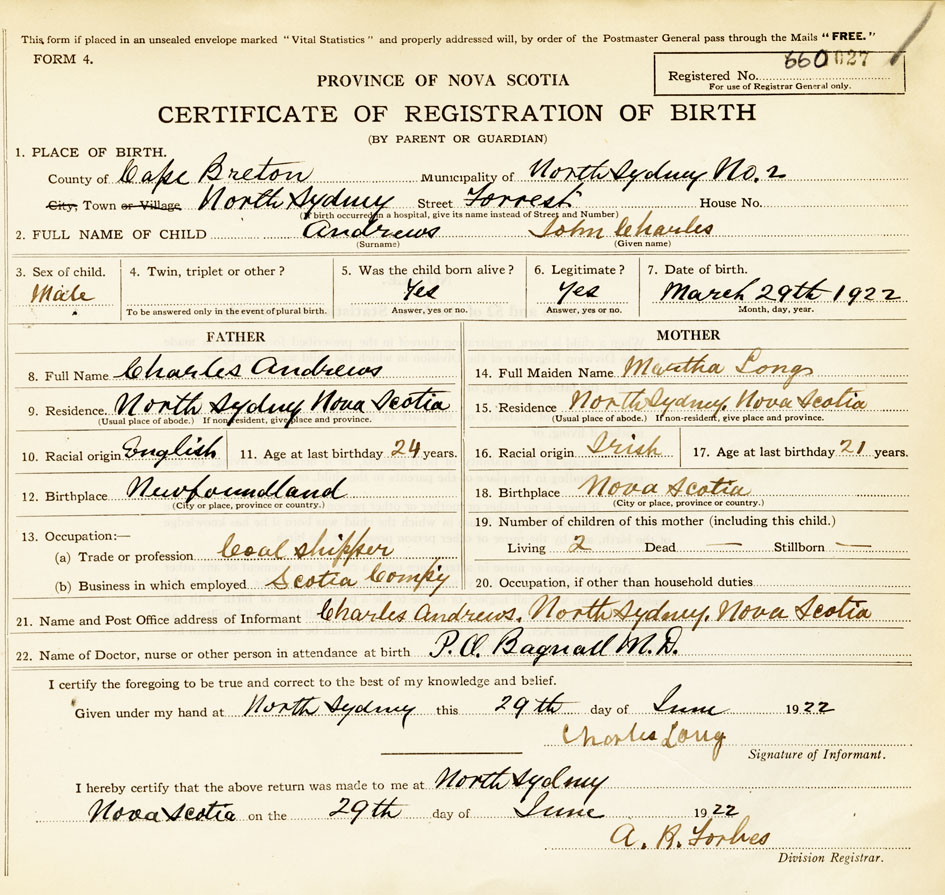 This form if placed in an unsealed envelope marked "Vital Statistics" and properly addressed will, by order of the Postmaster General pass through the Mails "FREE."
FORM 4.
660027
Registered No.
For use of Registrar General only.
PROVINCE OF NOVA SCOTIA
CERTIFICATE OF REGISTRATION OF BIRTH
(BY PARENT OR GUARDIAN)
1. PLACE OF BIRTH.
County of Cape Breton Municipality of North Sydney No. 2
City, Town or Village North Sydney Street Forrest House No.
(If birth occurred in a hospital, give its name instead of Street and Number)
2. FULL NAME OF CHILD Andrews John Charles
(Surname) (Given name)
3. Sex of child. 4. Twin, triplet or other? 5. Was the child born alive? 6. Legitimate? 7. Date of birth.
Male Yes Yes March 29th 1922
To be answered only in the event of plural birth. Answer, yes or no. Answer, yes or no. Month, day, year.
FATHER MOTHER
8. Full Name Charles Andrews 14. Full Maiden Name Martha Long
9. Residence. North Sydney Nova Scotia 15. Residence North Sydney. Nova Scotia
(Usual place of abode.) If non-resident, give place and province. (Usual place of abode.) If non-resident, give place and province.
10. Racial origin English 11. Age at last birthday 24 years. 16. Racial origin Irish 17. Age at last birthday 21 years.
12. Birthplace Newfoundland 18. Birthplace Nova Scotia
(City or place, province or country.) (City or place, province or country.)
19. Number of children of this mother (including this child.)
13. Occupation:—
Living 2 Dead — Stillborn —
(a) Trade or profession Coal shipper
(b) Business in which employed Scotia Compy 20. Occupation, if other than household duties
21. Name and Post Office address of Informant Charles Andrews. North Sydney. Nova Scotia
22. Name of Doctor, nurse or other person in attendance at birth P.O. Bagnall M.D.
I certify the foregoing to be true and correct to the best of my knowledge and belief.
Given under my hand at North Sydney this 29th day of June 1922
Charles Long
Signature of Informant.
I hereby certify that the above return was made to me at North Sydney
Nova Scotia on the 29th day of June 1922
A. R. Forbes
Division Registrar.